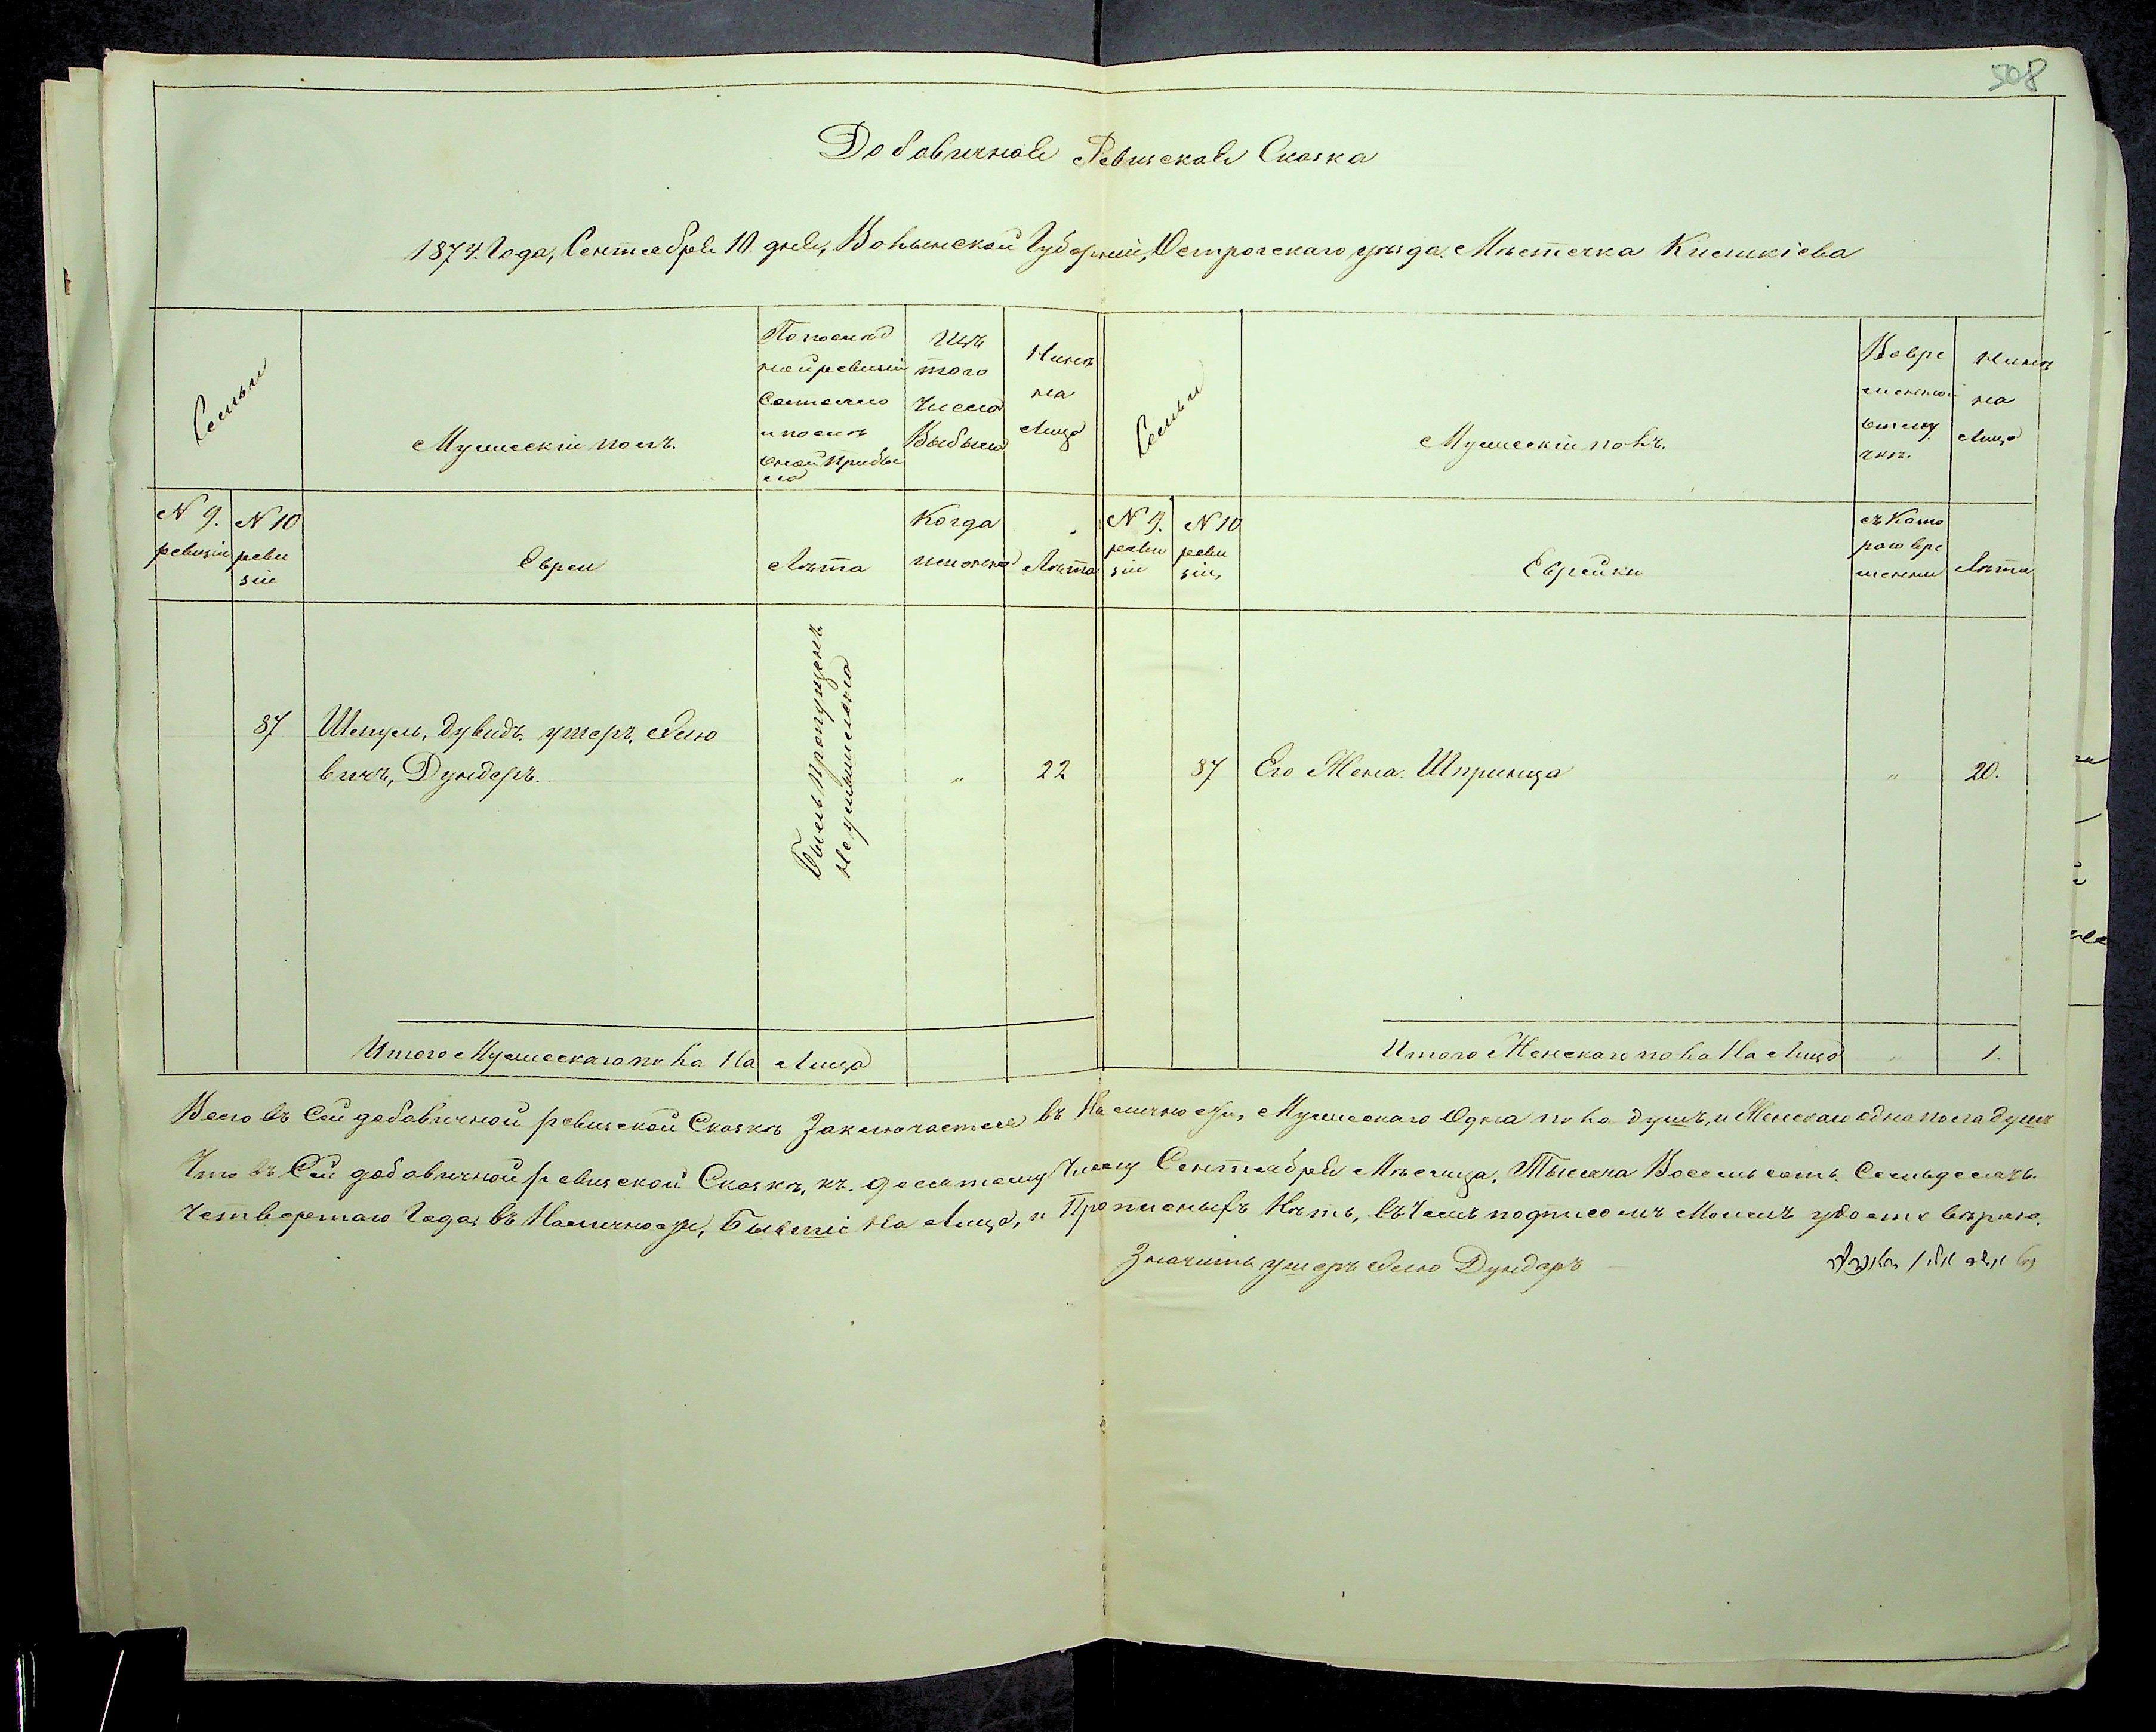 508
Добавичная Ревизская Сказка
1874. Года, Сентября 10 дня, Волынской Губерніи, Острогскаго уѣзда. Мѣстечка Кисикіева
Семьи
Мужескій полъ.
По послѣд
ней ревизіи
Состояло
и послѣ
оной прибы
ло
Изъ
того
Числа
Выбыло
Нынѣ
на
Лицо
Семьи
Мужескій полъ.
Вовре
менной
отлу
чкѣ.
Нынѣ
на
Лицо
N 9.
ревизіи
N 10
реви
зіи
Евреи
Лѣта
Когда
именно
Лѣта
N 9.
реви
зіи
N 10
реви
зіи,
Еврейки
съ Кото
раго вре
мени
Лѣта
87
Шмуль, Дувидъ. умеръ,
вичъ, Дундеръ.
Былъ пропущенъ
неумышлено
„
22
87
Его Жена. Шпринца
„
20.
Итого Мужескаго пола На Лицо
Итого Женскаго пола На Лицо
1.
Всего въ Сей добавичной ревизской Сказкѣ Заключается въ Наличности, Мужескаго Одна пола душъ, и Женскаго одна пола душъ
Что въ Сей добавичной ревизской Сказкѣ, къ. десятому Числу Сентября Мѣсяца, Тысяча Восемьсотъ Семьдесятъ.
Четвертаго Года, въ Наличности, Бывшіе На Лицо, и Прописныхъ Нѣтъ, въ Чемъ подписомъ Моимъ удостовѣряю.
Значитъ умеръ Дундеръ